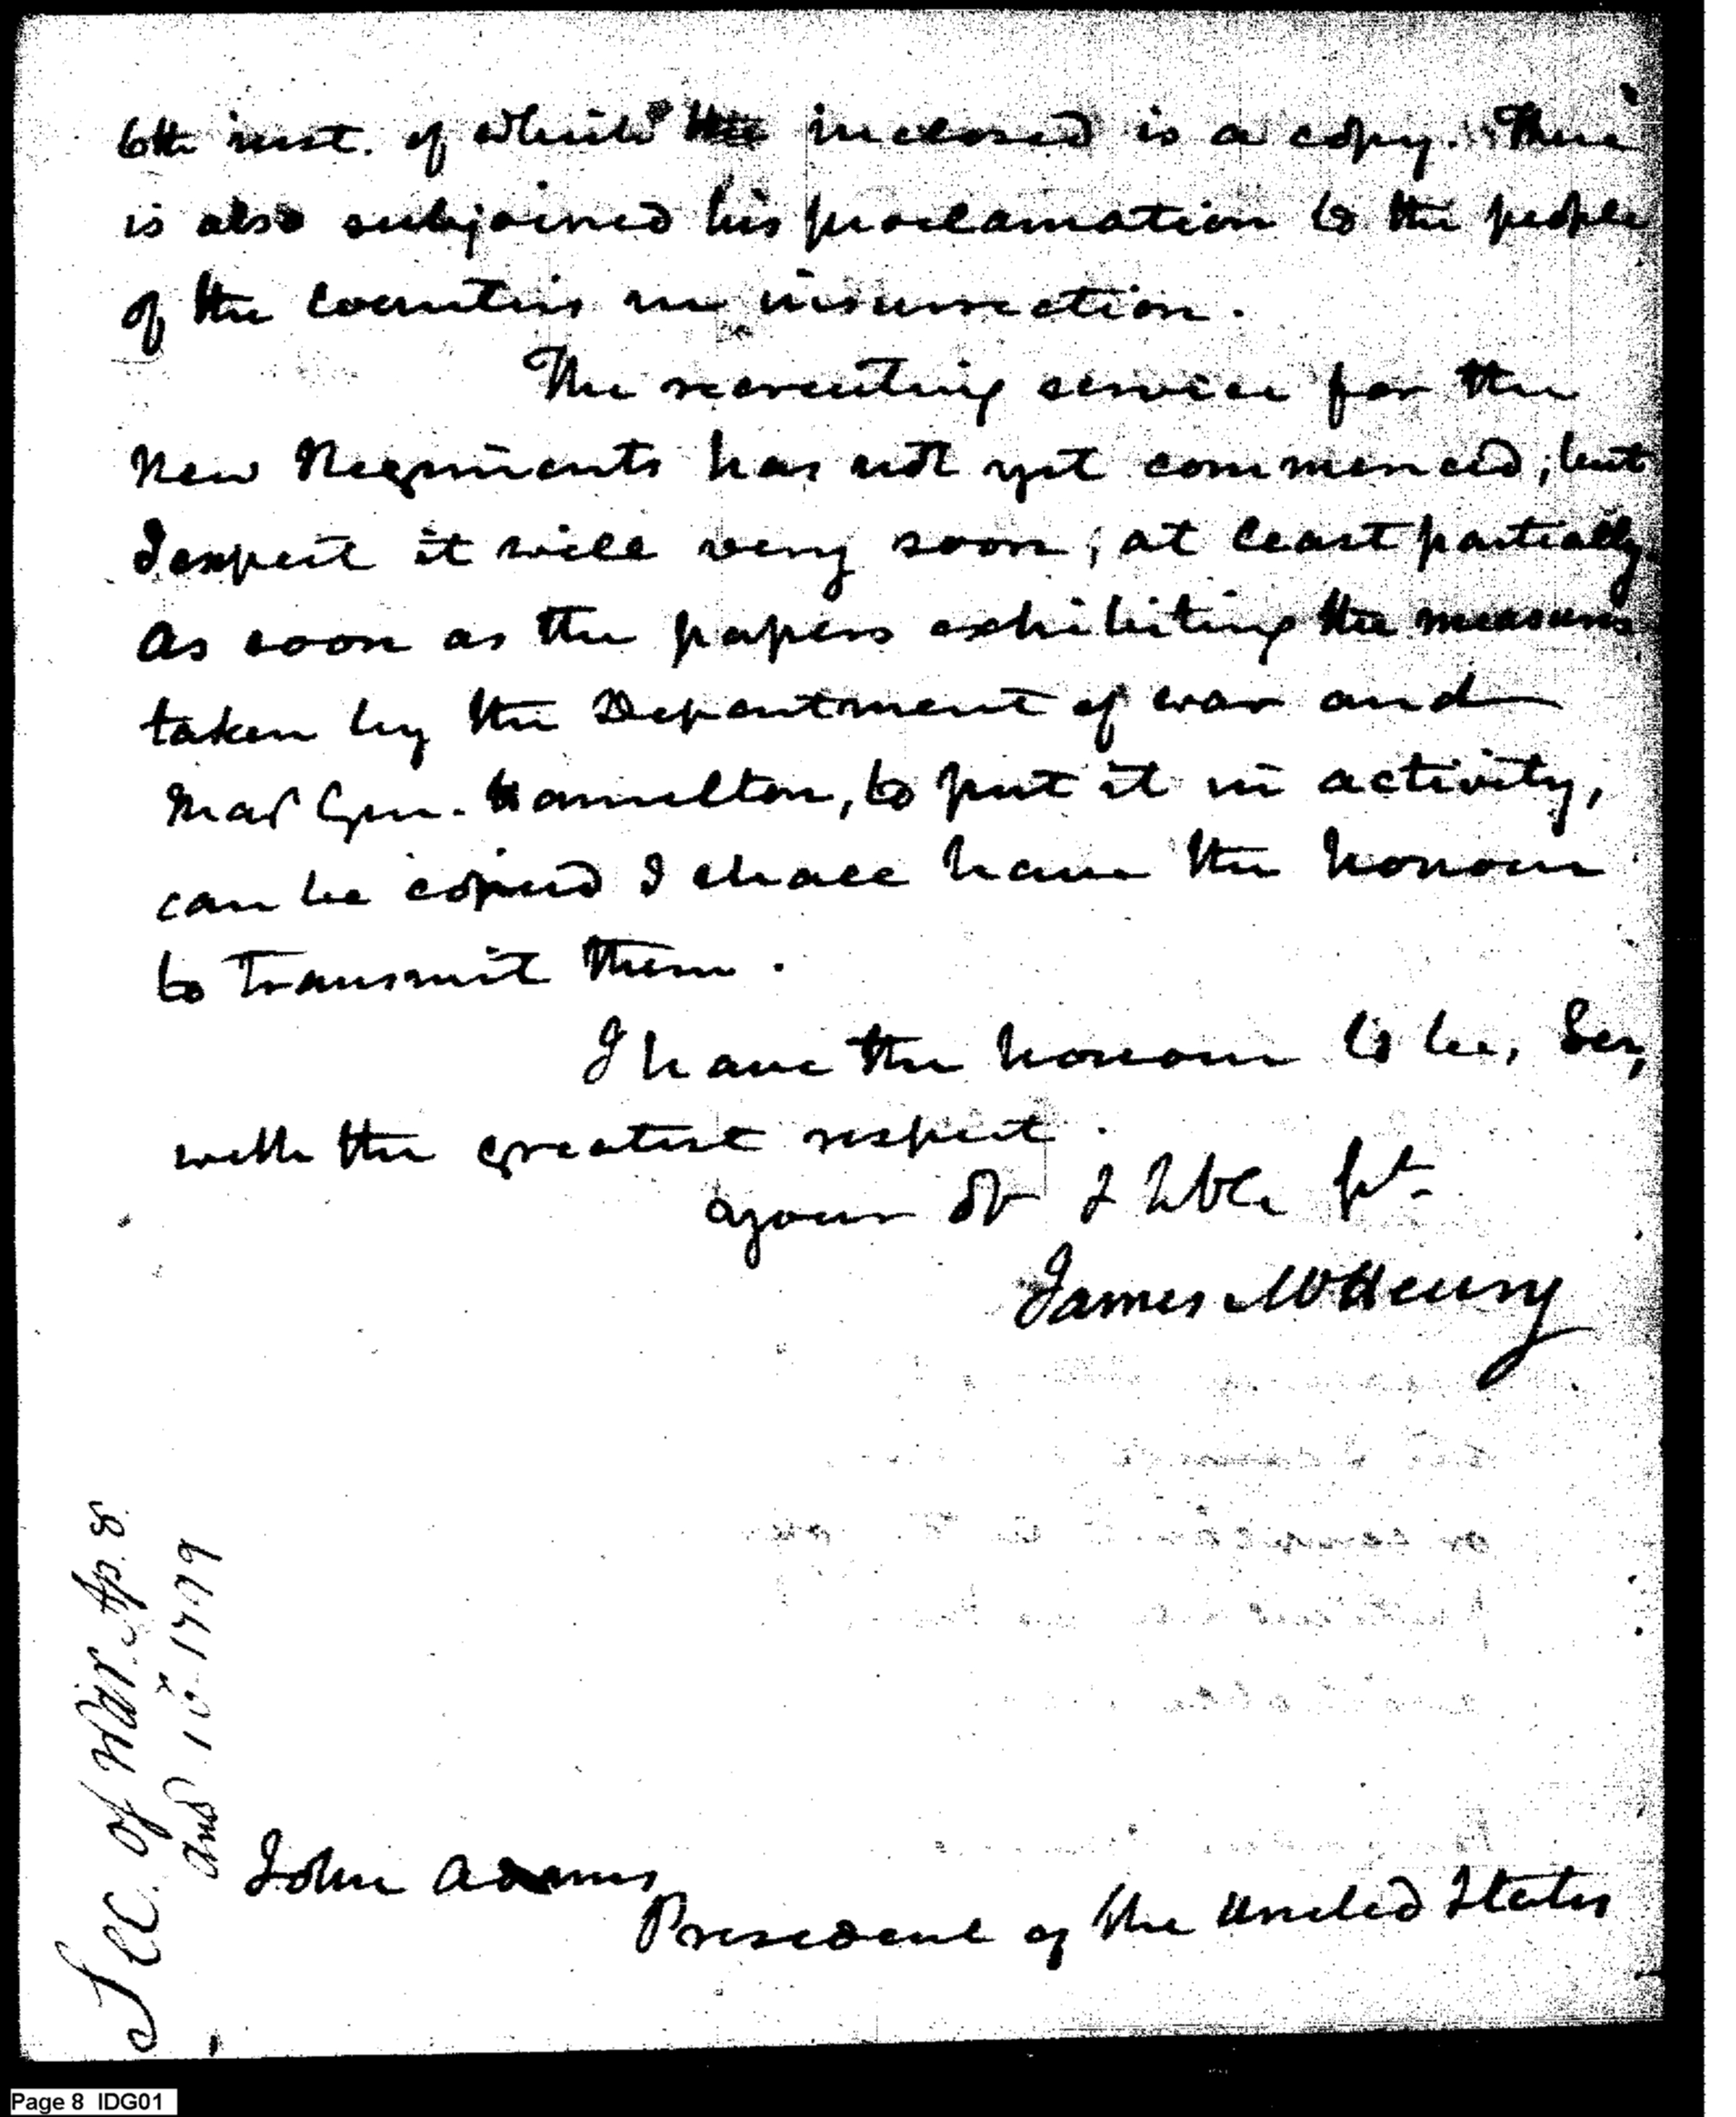 6th inst. of which the inclosed is a copy. There
is also subjoined his proclamation to the people
of the counties in insurrection.
The recruiting service for the
New Regiments has not yet commenced; but
I expect it will very soon, at least partially.
As soon as the papers exhibiting the measures
taken by the Department of war and
Maj Gen. Hamilton, to put it in activity,
can be copied I shall have the honour
to transmit them.
I have the honour to be, Sir,
with the greatest respect.
your & hble St
James McHenry
John Adams
President of the United States
Sec. of War. Ap. 8.
and 10 1799
Page 8 IDG01